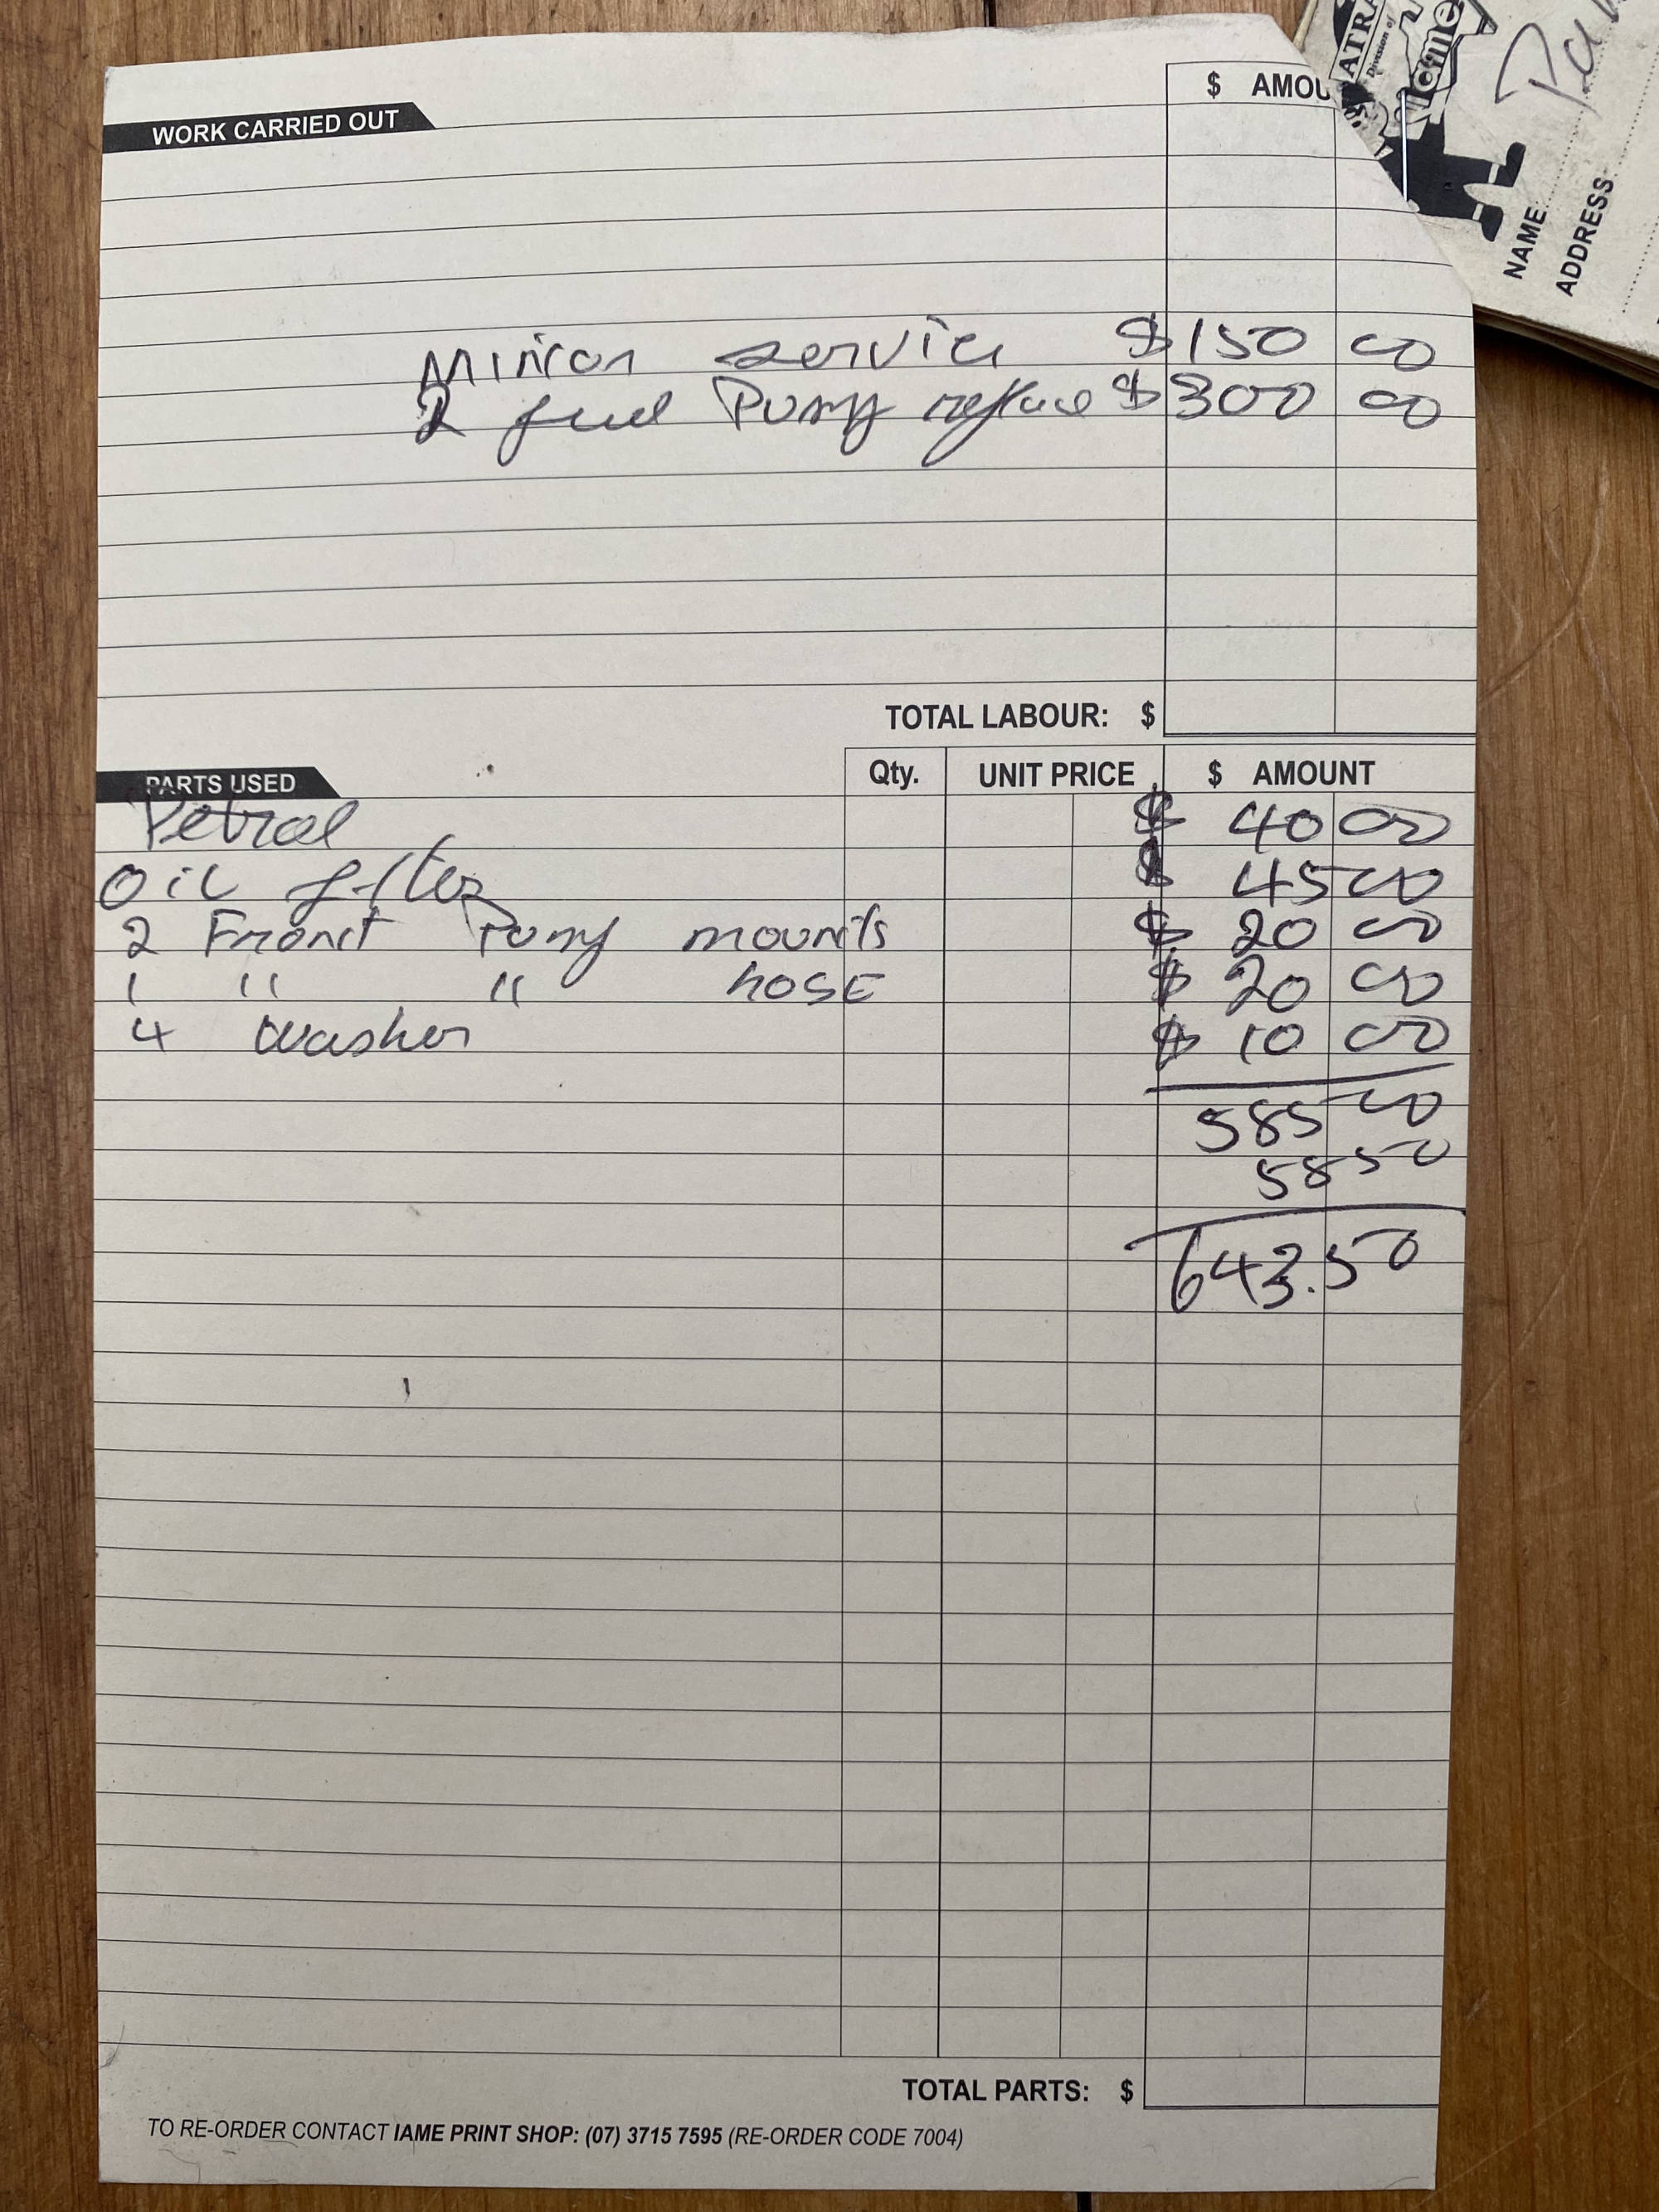 WORK CARRIED OUT
$ AMOU
Minor service $150 00
2 fuel Pump replace $300 00
TOTAL LABOUR: $
PARTS USED Qty. UNIT PRICE $ AMOUNT
Petrol $ 40 00
Oil filter $ 45 00
2 Front Pump mounts $ 20 00
1 " " hose $ 20 00
4 washer $ 10 00
585 00
58 50
643.50
TOTAL PARTS: $
TO RE-ORDER CONTACT IAME PRINT SHOP: (07) 3715 7595 (RE-ORDER CODE 7004)
ATRA
Division of
iame
NAME
ADDRESS